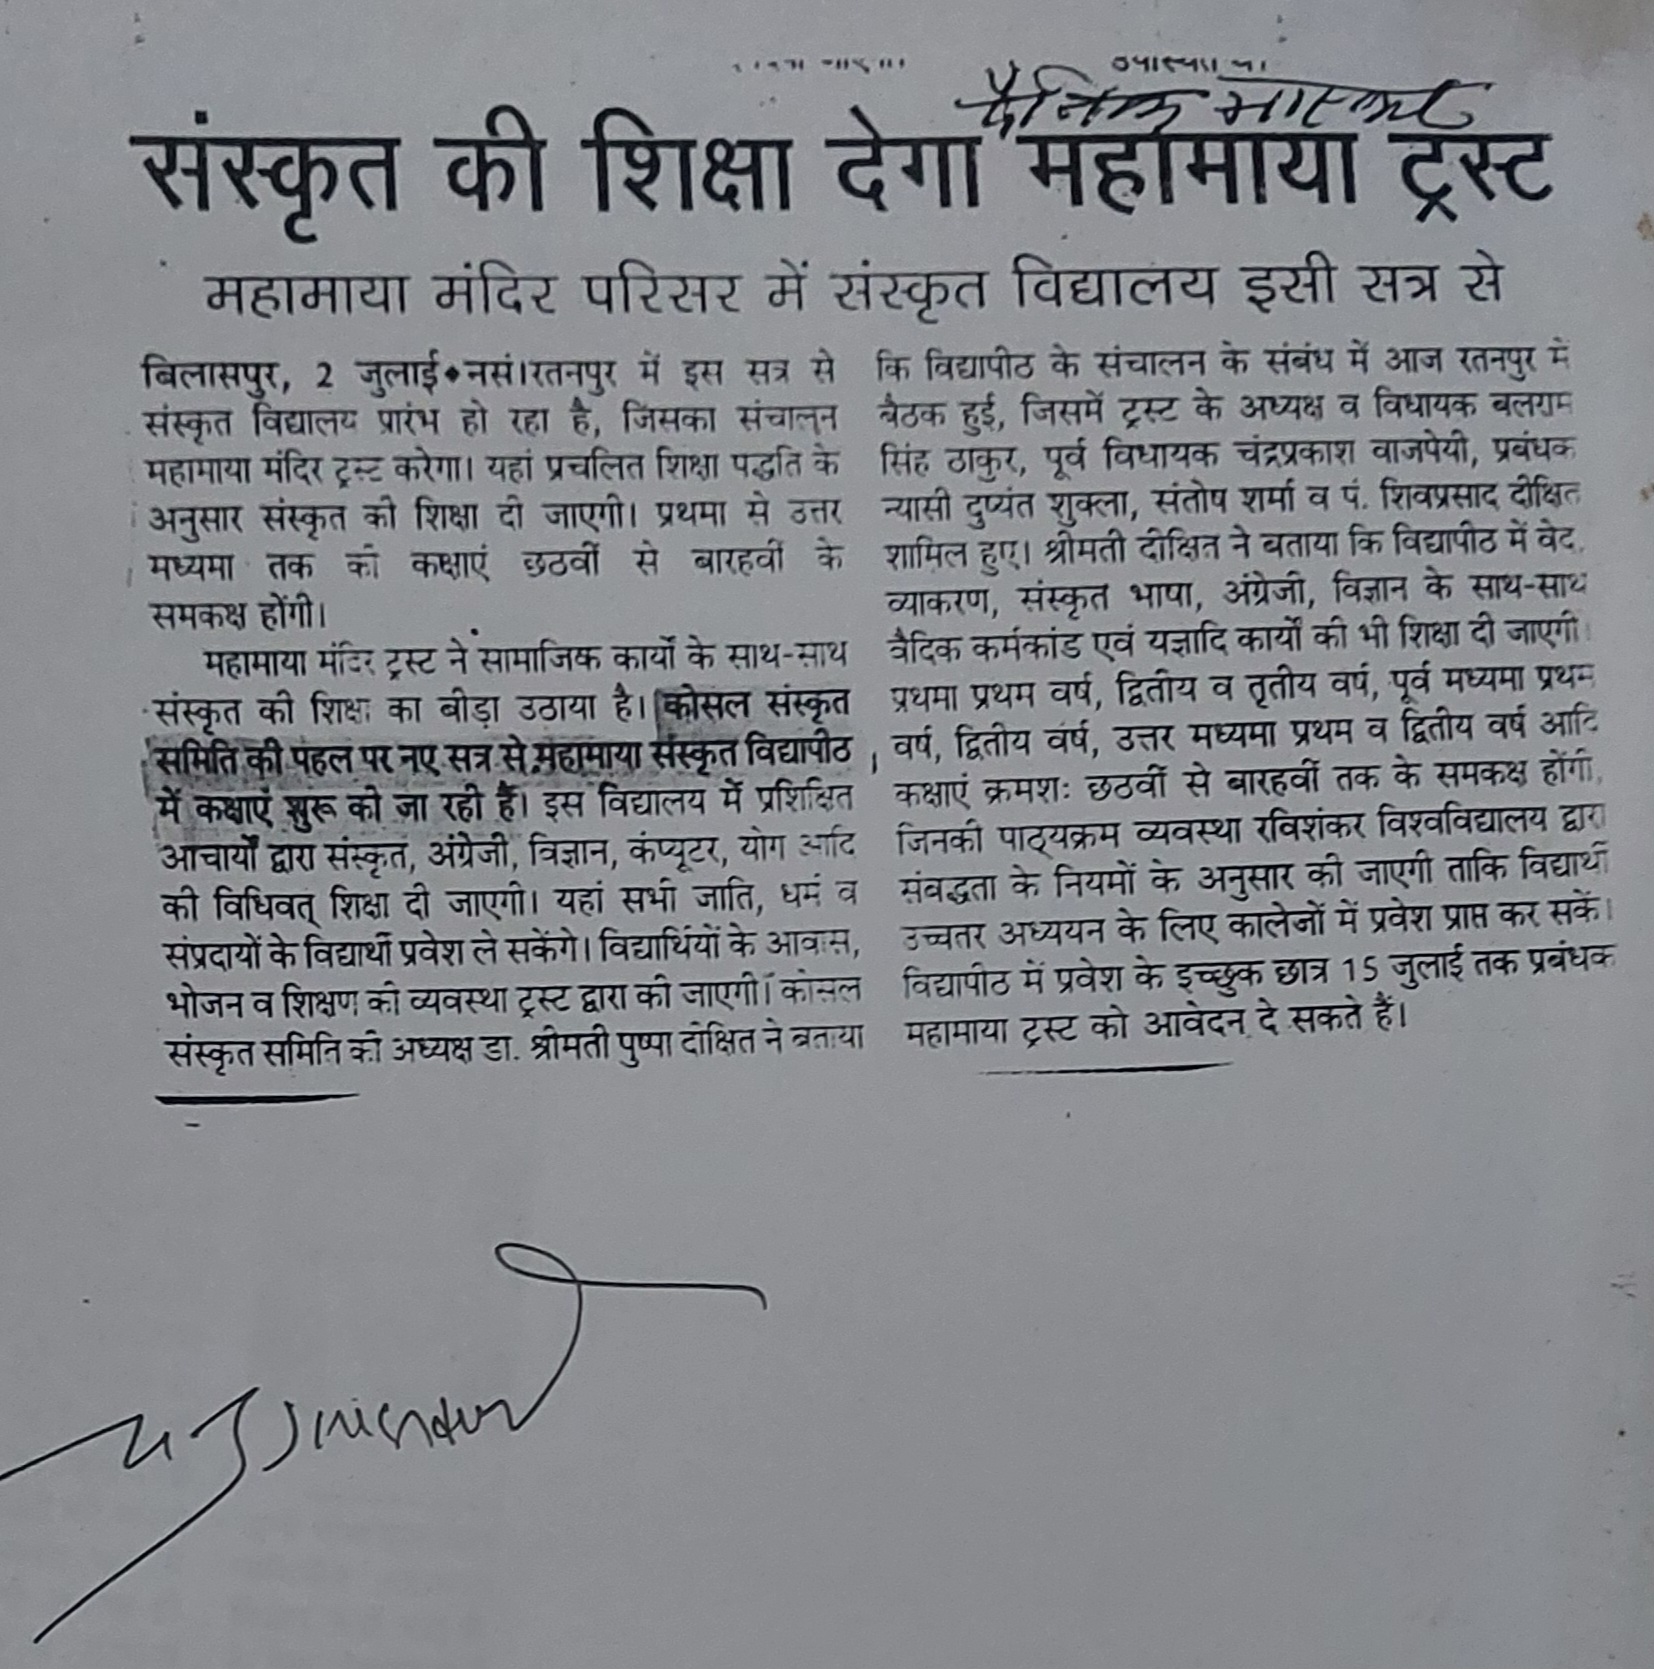 दैनिक भास्कर
संस्कृत की शिक्षा देगा महामाया ट्रस्ट
महामाया मंदिर परिसर में संस्कृत विद्यालय इसी सत्र से
बिलासपुर, 2 जुलाई•नसं।रतनपुर में इस सत्र से
संस्कृत विद्यालय प्रारंभ हो रहा है, जिसका संचालन
महामाया मंदिर ट्रस्ट करेगा। यहां प्रचलित शिक्षा पद्धति के
अनुसार संस्कृत की शिक्षा दी जाएगी। प्रथमा से उत्तर
मध्यमा तक की कक्षाएं छठवीं से बारहवीं के
समकक्ष होंगी।
महामाया मंदिर ट्रस्ट ने सामाजिक कार्यों के साथ-साथ
संस्कृत की शिक्षा का बीड़ा उठाया है। कोसल संस्कृत
समिति की पहल पर नए सत्र से महामाया संस्कृत विद्यापीठ
में कक्षाएं शुरू की जा रही हैं। इस विद्यालय में प्रशिक्षित
आचार्यों द्वारा संस्कृत, अंग्रेजी, विज्ञान, कंप्यूटर, योग आदि
की विधिवत् शिक्षा दी जाएगी। यहां सभी जाति, धर्म व
संप्रदायों के विद्यार्थी प्रवेश ले सकेंगे। विद्यार्थियों के आवास,
भोजन व शिक्षण की व्यवस्था ट्रस्ट द्वारा की जाएगी। कोसल
संस्कृत समिति की अध्यक्ष डा. श्रीमती पुष्पा दीक्षित ने बताया
कि विद्यापीठ के संचालन के संबंध में आज रतनपुर में
बैठक हुई, जिसमें ट्रस्ट के अध्यक्ष व विधायक बलराम
सिंह ठाकुर, पूर्व विधायक चंद्रप्रकाश वाजपेयी, प्रबंधक
न्यासी दुष्यंत शुक्ला, संतोष शर्मा व पं. शिवप्रसाद दीक्षित
शामिल हुए। श्रीमती दीक्षित ने बताया कि विद्यापीठ में वेद,
व्याकरण, संस्कृत भाषा, अंग्रेजी, विज्ञान के साथ-साथ
वैदिक कर्मकांड एवं यज्ञादि कार्यों की भी शिक्षा दी जाएगी।
प्रथमा प्रथम वर्ष, द्वितीय व तृतीय वर्ष, पूर्व मध्यमा प्रथम
वर्ष, द्वितीय वर्ष, उत्तर मध्यमा प्रथम व द्वितीय वर्ष आदि
कक्षाएं क्रमशः छठवीं से बारहवीं तक के समकक्ष होंगी,
जिनकी पाठ्यक्रम व्यवस्था रविशंकर विश्वविद्यालय द्वारा
संबद्धता के नियमों के अनुसार की जाएगी ताकि विद्यार्थी
उच्चतर अध्ययन के लिए कालेजों में प्रवेश प्राप्त कर सकें।
विद्यापीठ में प्रवेश के इच्छुक छात्र 15 जुलाई तक प्रबंधक
महामाया ट्रस्ट को आवेदन दे सकते हैं।